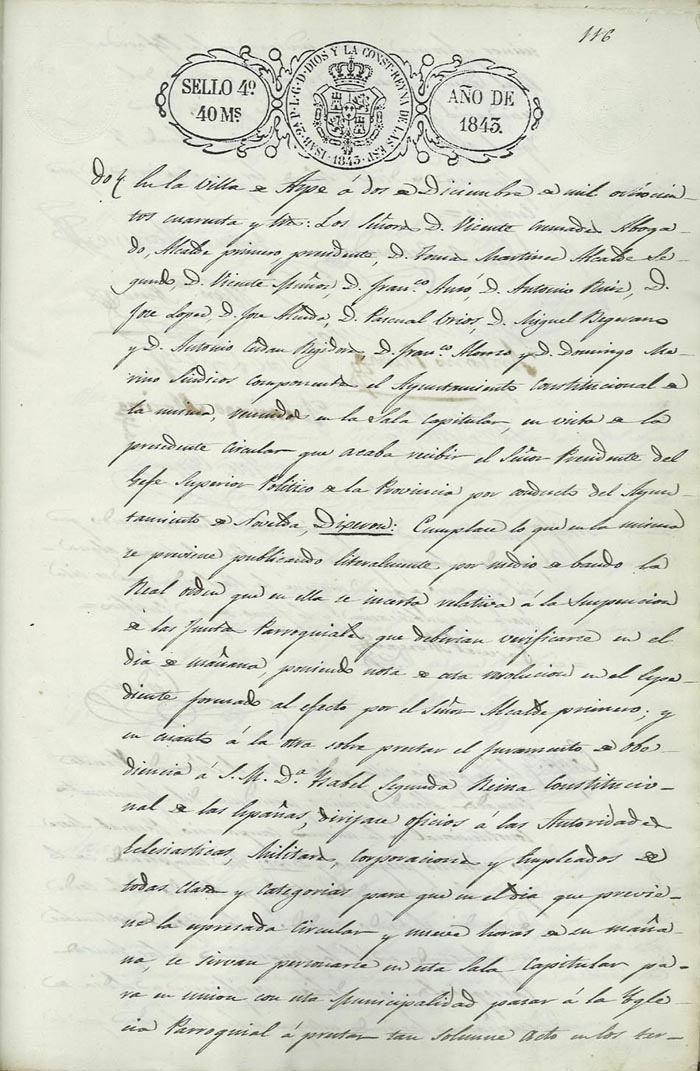 116
SELLO 4º
40 Ms
ISAB. 2ª P. L. G. D. DIOS Y LA CONST. REYNA DE LAS ESP.
1843
AÑO DE
1843.
En la Villa de Aspe á dos de Diciembre de mil ochocien-
tos cuarenta y tres: Los Señores D. Vicente Cremades Aboga-
do, Alcalde primero presidente, D. Tomás Martinez Alcalde Se-
gundo, D. Vicente Muñoz, D. Franco. D. Antonio Ruiz, D.
Jose Lopez D. Jose D. Pascual Urios D. Miguel Begerano
y D. Antonio Regidores, D. Franco. Alonzo y D. Domingo Me-
rino Sindicos componentes el Ayuntamiento Constitucional de
la misma, reunidos en la Sala Capitular, en vista de la
precedente Circular que acaba recibir el Señor Presidente del
Gefe Superior Politico de la Provincia por conducto del Ayun-
tamiento de Novelda, Dixeron: Cumplase lo que en la misma
se previene publicando literalmente por medio de bando la
Real orden que en ella se inserta relativa á la Suspencion
de las Juntas Parroquiales que deberian verificarse en el
dia de mañana, poniendo nota de esta resolucion en el Espe-
diente formado al efecto por el Señor Alcalde primero; y
en cuanto á la otra sobre prestar el Juramento de obe-
diencia á S. M. D.ª Ysabel Segunda Reina Constitucio-
nal de las Españas, dirijase oficios á las Autoridades
Eclesiasticas, Militares, Corporaciones y Empleados de
todas clases y categorias para que en el dia que previe-
ne la espresada Circular y nueve horas de su maña-
na, se sirvan personarse en esta Sala Capitular pa-
ra en union con esta Municipalidad pasar á la Ygle-
cia Parroquial á prestar tan solemne acto en los ter-